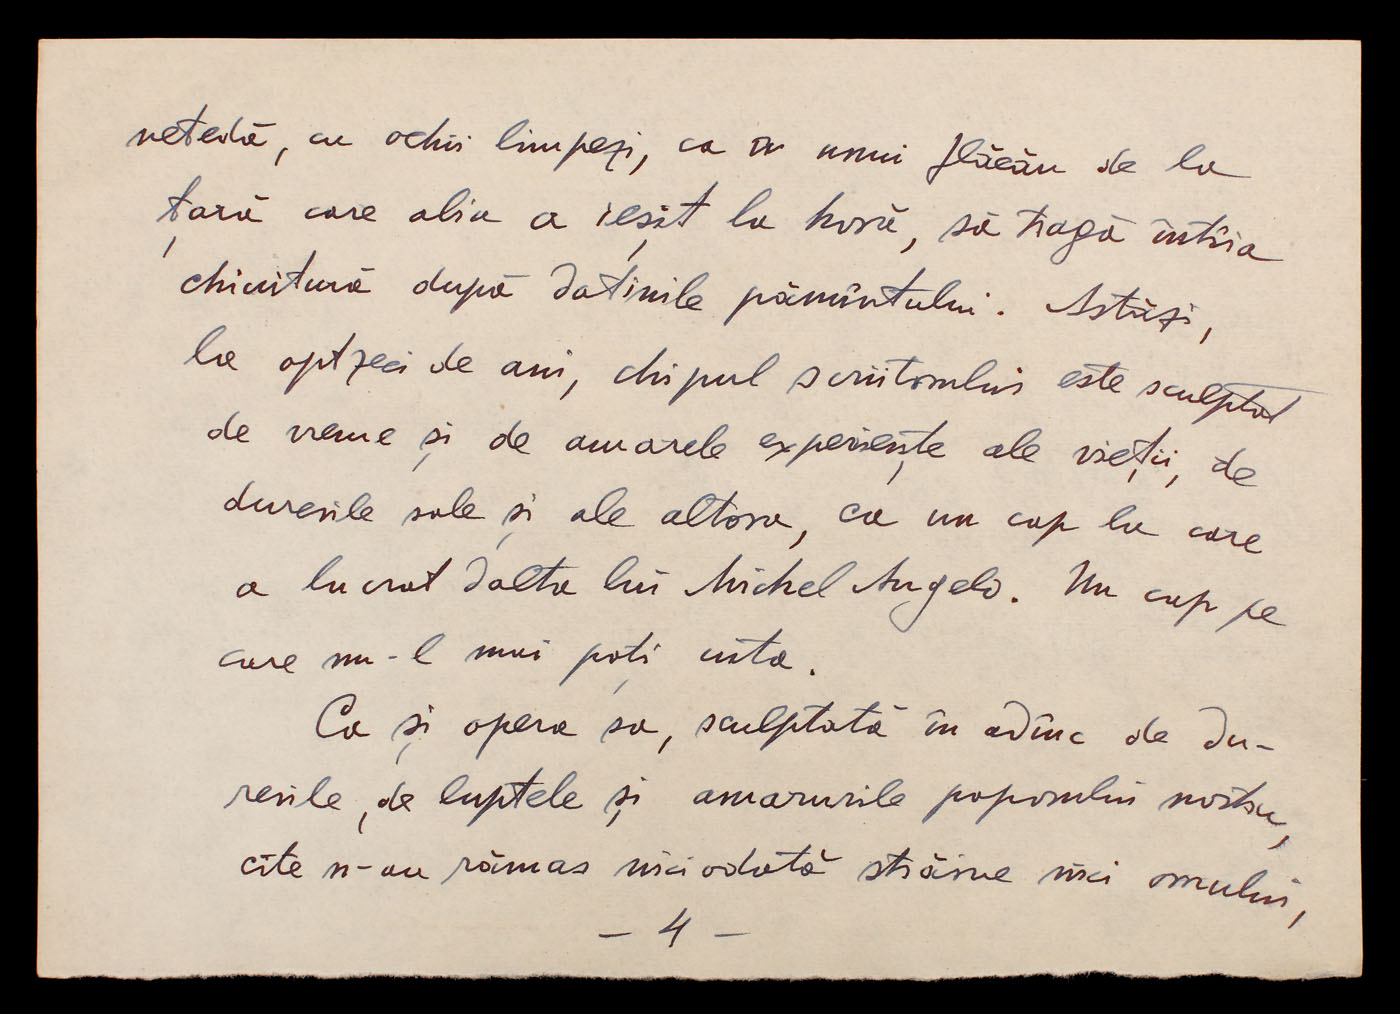 netedă, cu ochii limpezi, ca ai unui flăcău de la
țară care abia a ieșit la horă, să tragă întîia
chiuitură după datinile pămîntului. Astăzi,
la optzeci de ani, chipul scriitorului este sculptat
de vreme și de amarele experiențe ale vieții, de
durerile sale și ale altora, ca un cap la care
a lucrat dalta lui Michel Angelo. Un cap pe
care nu-l mai poți uita.
Ca și opera sa, sculptată în adînc de du-
rerile, de luptele și amarurile poporului nostru,
cîte n-au rămas niciodată străine nici omului,
- 4 -